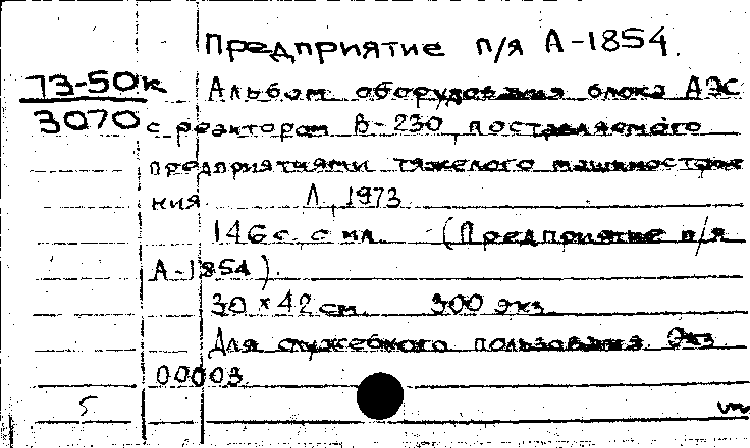 Предприятие п/я А-1854.
73-50к
3070
Альбом оборудования блока АЭС
с реактором В-230, поставляемого
предприятиями тяжелого машиностроения
Л., 1973
146 с. с ил. (Предприятие п/я
А-1854).
30 × 42 см. 300 экз.
Для служебного пользования. Экз.
00003.
5